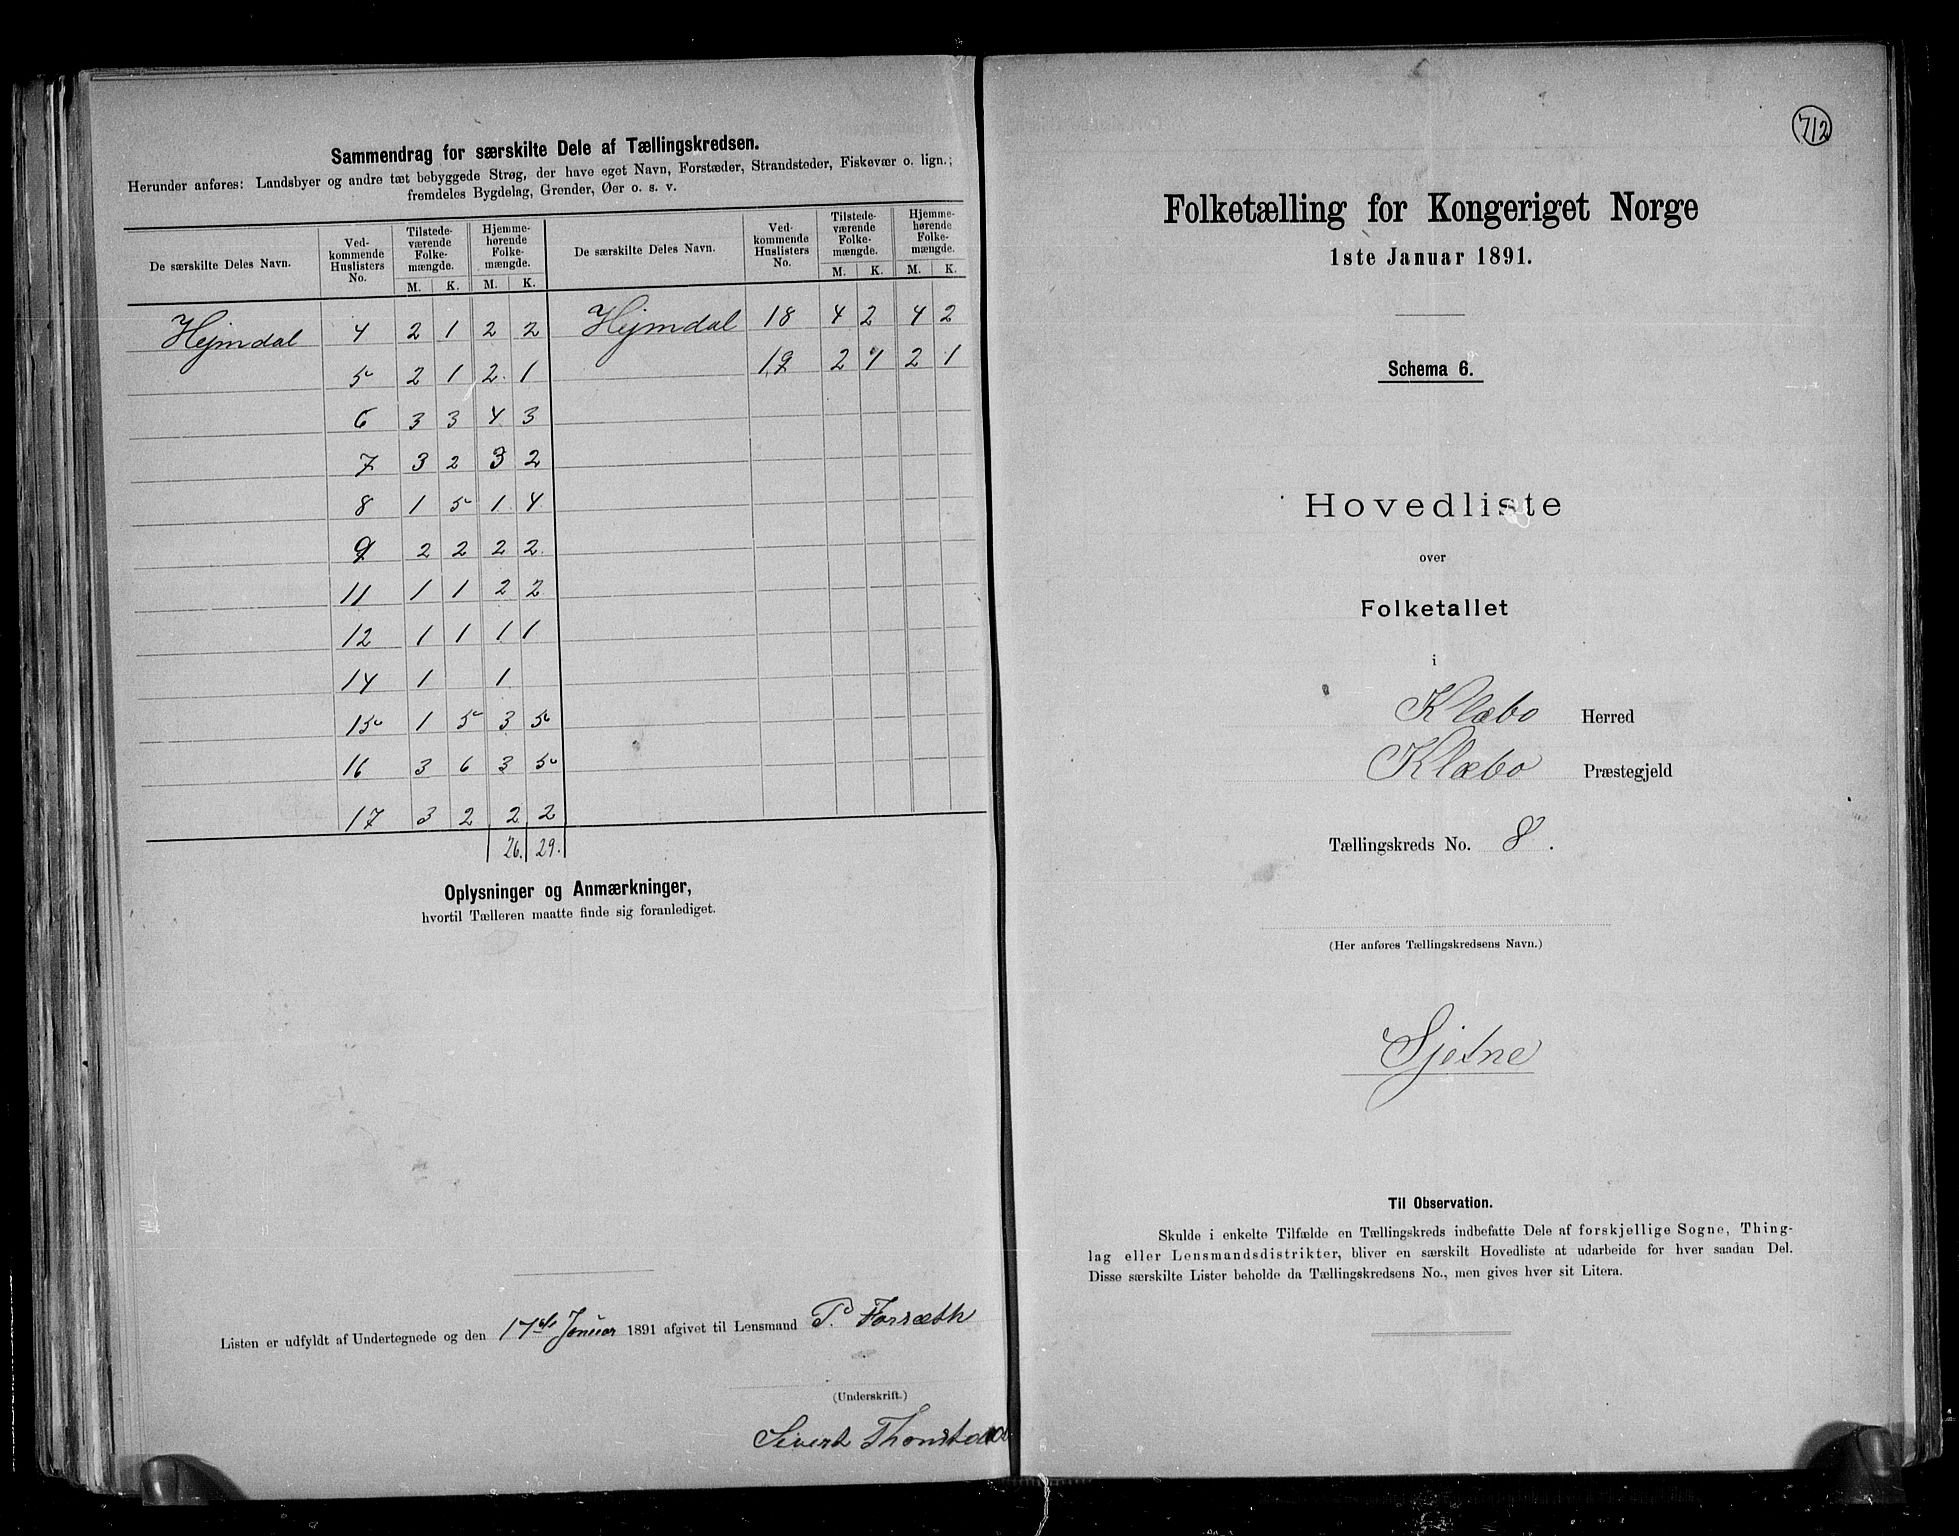 Sammendrag for særskilte Dele af Tællingskredsen.
Herunder anføres: Landsbyer og andre tæt bebyggede Strøg, der have eget Navn, Forstæder, Strandsteder, Fiskevær o. lign.;
fremdeles Bygdelag, Grender, Øer o. s. v.
De særskilte Deles Navn. Ved-kommende Huslisters No. Tilstede-værende Folke-mængde. Hjemme-hørende Folke-mængde. De særskilte Deles Navn. Ved-kommende Huslisters No. Tilstede-værende Folke-mængde. Hjemme-hørende Folke-mængde.
M. K. M. K. M. K. M. K.
Hejmdal 4 2 1 2 2 Hejmdal 18 4 2 4 2
5 2 1 2 1 19 2 1 2 1
6 3 3 4 3
7 3 2 3 2
8 1 5 1 4
9 2 2 2 2
11 1 1 2 2
12 1 1 1 1
14 1 1
15 1 5 3 5
16 3 6 3 5
17 3 2 2 2
26. 29.
Oplysninger og Anmærkninger,
hvortil Tælleren maatte finde sig foranlediget.
Listen er udfyldt af Undertegnede og den 17de Januar 1891 afgivet til Lensmand P. Forsæth
(Underskrift.)
Sivert Thonstad
712
Folketælling for Kongeriget Norge
1ste Januar 1891.
Schema 6.
Hovedliste
over
Folketallet
i
Klæbo Herred
Klæbo Præstegjeld
Tællingskreds No. 8.
(Her anføres Tællingskredsens Navn.)
Sjetne
Til Observation.
Skulde i enkelte Tilfælde en Tællingskreds indbefatte Dele af forskjellige Sogne, Thing-
lag eller Lensmandsdistrikter, bliver en særskilt Hovedliste at udarbeide for hver saadan Del.
Disse særskilte Lister beholde da Tællingskredsens No., men gives hver sit Litera.